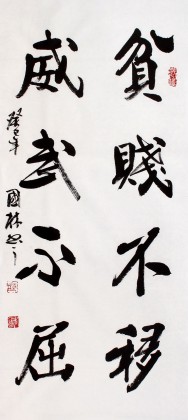 貧賤不移
威武不屈
癸巳年
國林書